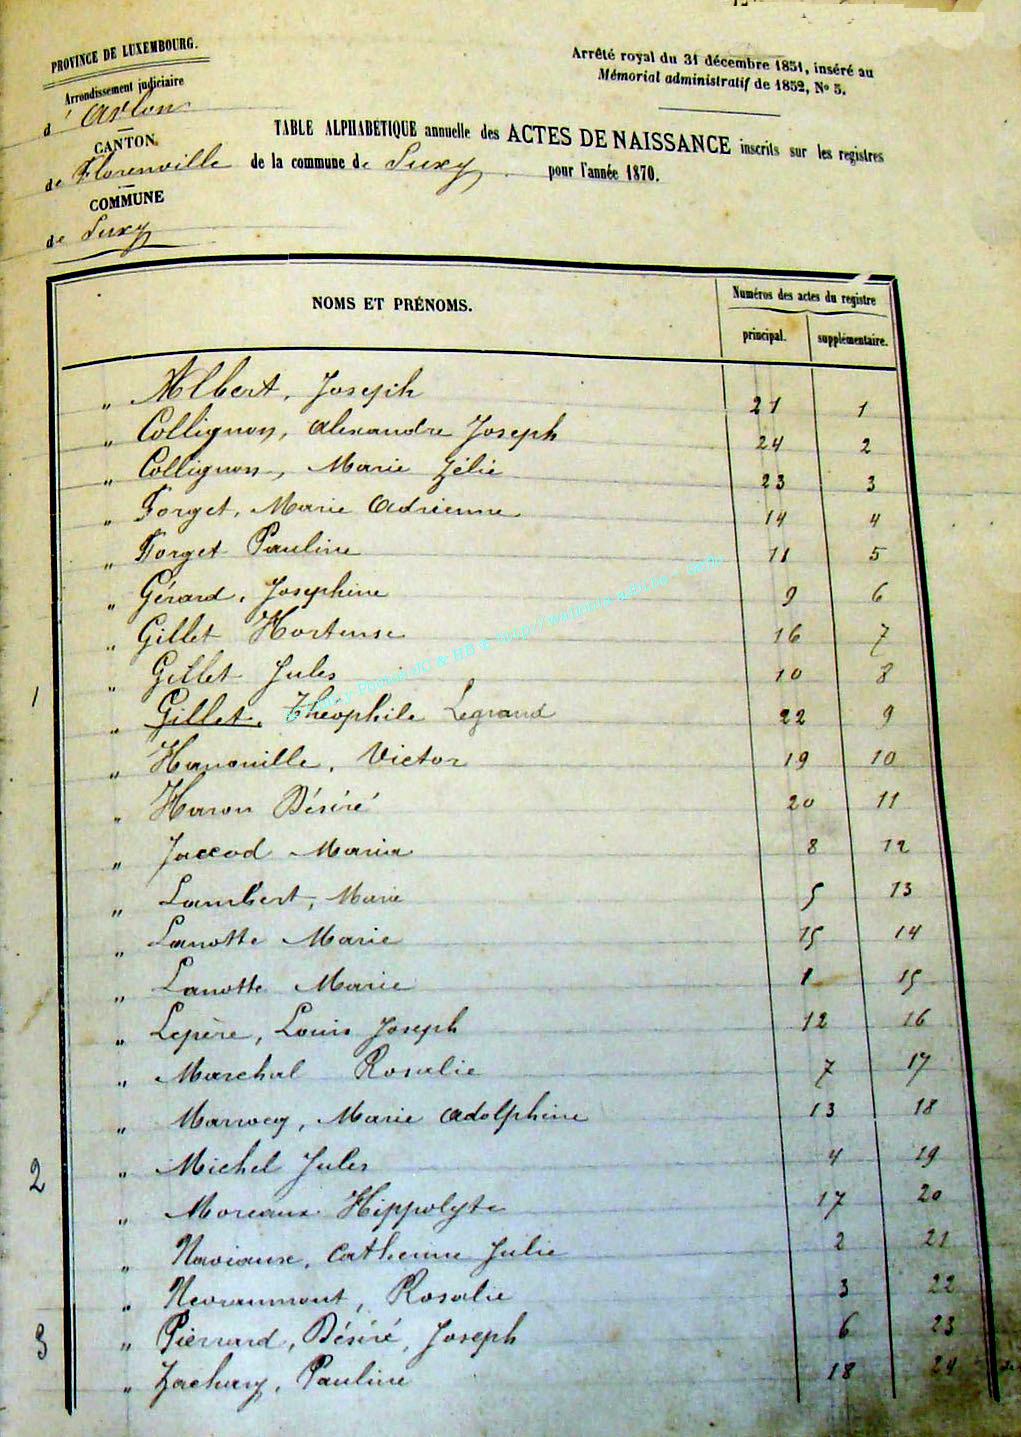 PROVINCE DE LUXEMBOURG.
Arrondissement judiciaire
d'Arlon
CANTON
de Florenville
COMMUNE
de Suxy
Arrêté royal du 31 décembre 1851, inséré au
Mémorial administratif de 1852, N° 5.
TABLE ALPHABÉTIQUE annuelle des ACTES DE NAISSANCE inscrits sur les registres
de la commune de Suxy. pour l'année 1870.
NOMS ET PRÉNOMS. Numéros des actes du registre
principal. supplémentaire.
" Albert, Joseph 21 1
" Collignon, Alexandre Joseph 24 2
" Collignon, Marie Zélie 23 3
" Forget, Marie Adrienne 14 4
" Forget Pauline 11 5
" Gérard, Josephine 9 6
" Gillet Hortense 16 7
1 " Gillet Jules 10 8
" Gillet, Théophile Legrand 22 9
" Hanouille, Victor 19 10
" Haron Désiré 20 11
" Jaccod Maria 8 12
" Lambert, Marie 5 13
" Lanotte Marie 15 14
" Lanotte Marie 1 15
" Lepère, Louis Joseph 12 16
" Marchal Rosalie 7 17
" Marrocq, Marie Adolphine 13 18
2 " Michel Jules 4 19
" Moreaux Hippolyte 17 20
" Naviaux, Catherine Julie 2 21
" Nevraumont, Rosalie 3 22
3 " Pierrard, Désiré, Joseph 6 23
" Zachary, Pauline 18 24